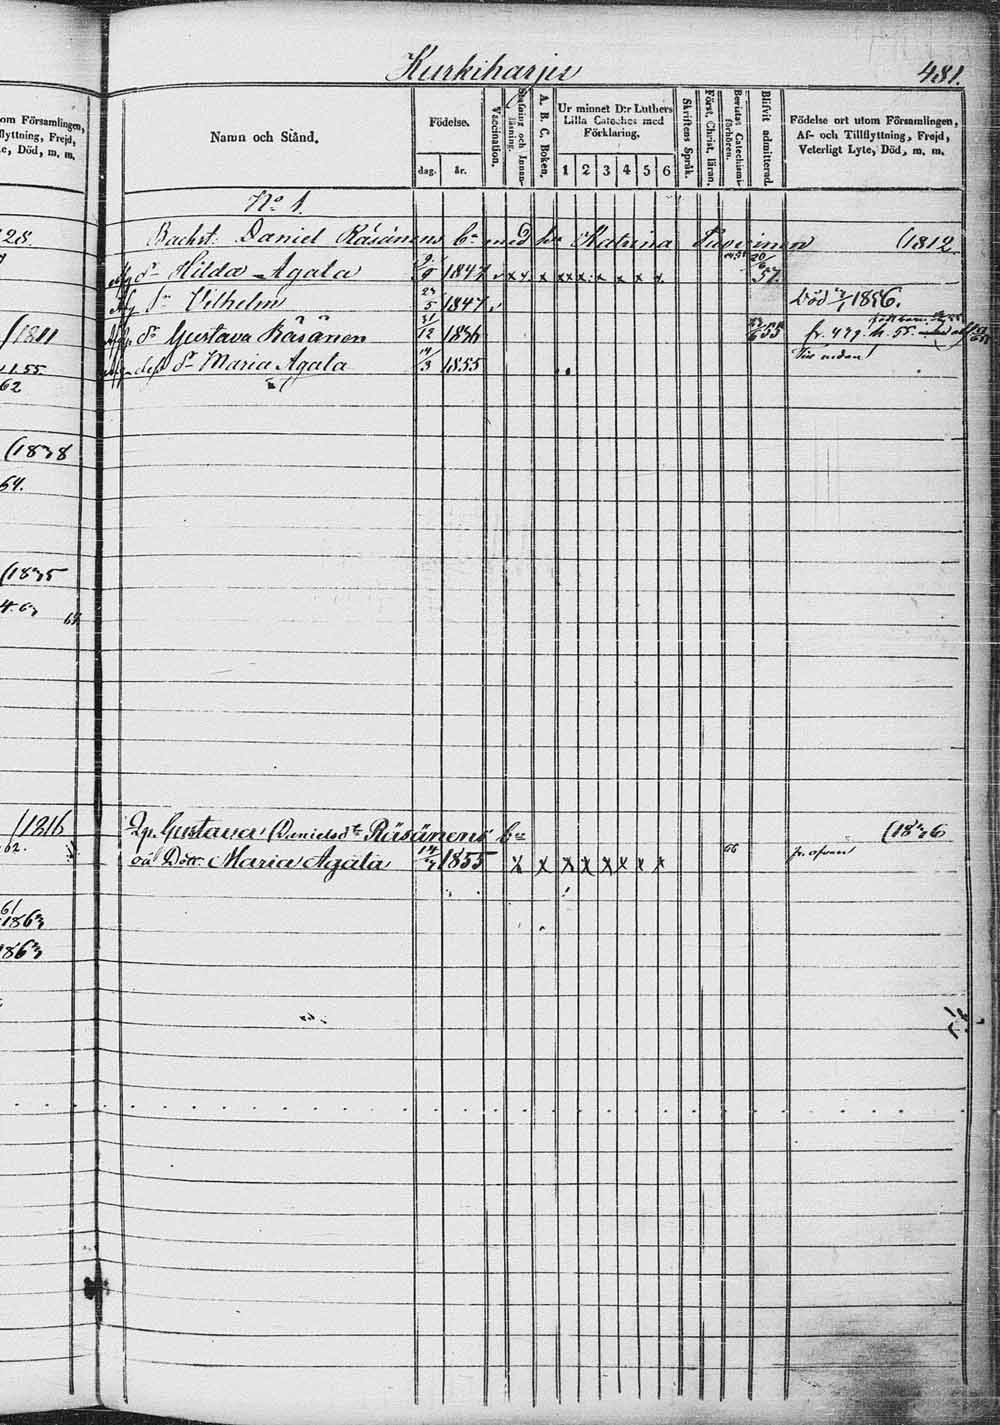 Kurkiharju
481.
om Församlingen,
flyttning, Frejd,
e, Död, m. m.
Namn och Stånd.
Födelse.
dag. år.
Vaccination.
Stafning och Innan-
läsning.
A. B. C. Boken.
Ur minnet D:r Luthers
Lilla Cateches med
Förklaring.
1 2 3 4 5 6
Skriftens Språk.
Först. Christ. läran.
Bevistat Catechismi-
förhören.
Blifvit admitterad.
Födelse ort utom Församlingen,
Af- och Tillflyttning, Frejd,
Veterligt Lyte, Död, m. m.
No 1.
28. Bachst: Daniel Räsänens br med hu Katrina (1812.
dr Hilda Agata 9/9 1847 x x x x x x x x x x 20/6 57.
sn Vilhelm 23/5 1847 Död 1856.
(1811 dr Gustava Räsänen 31/12 1836 55 fr. 479. h. 55.
155. dess dr Maria Agata 14/3 1855 Vid nedan
62
(1838
54.
(1835
4.63 64
(1816 Gustava Danielsdtr Räsänens br (1836
62. oä Dotr Maria Agata 14/3 1855 x x x x x x x x 66 fr. ofvan
61
1863
1863